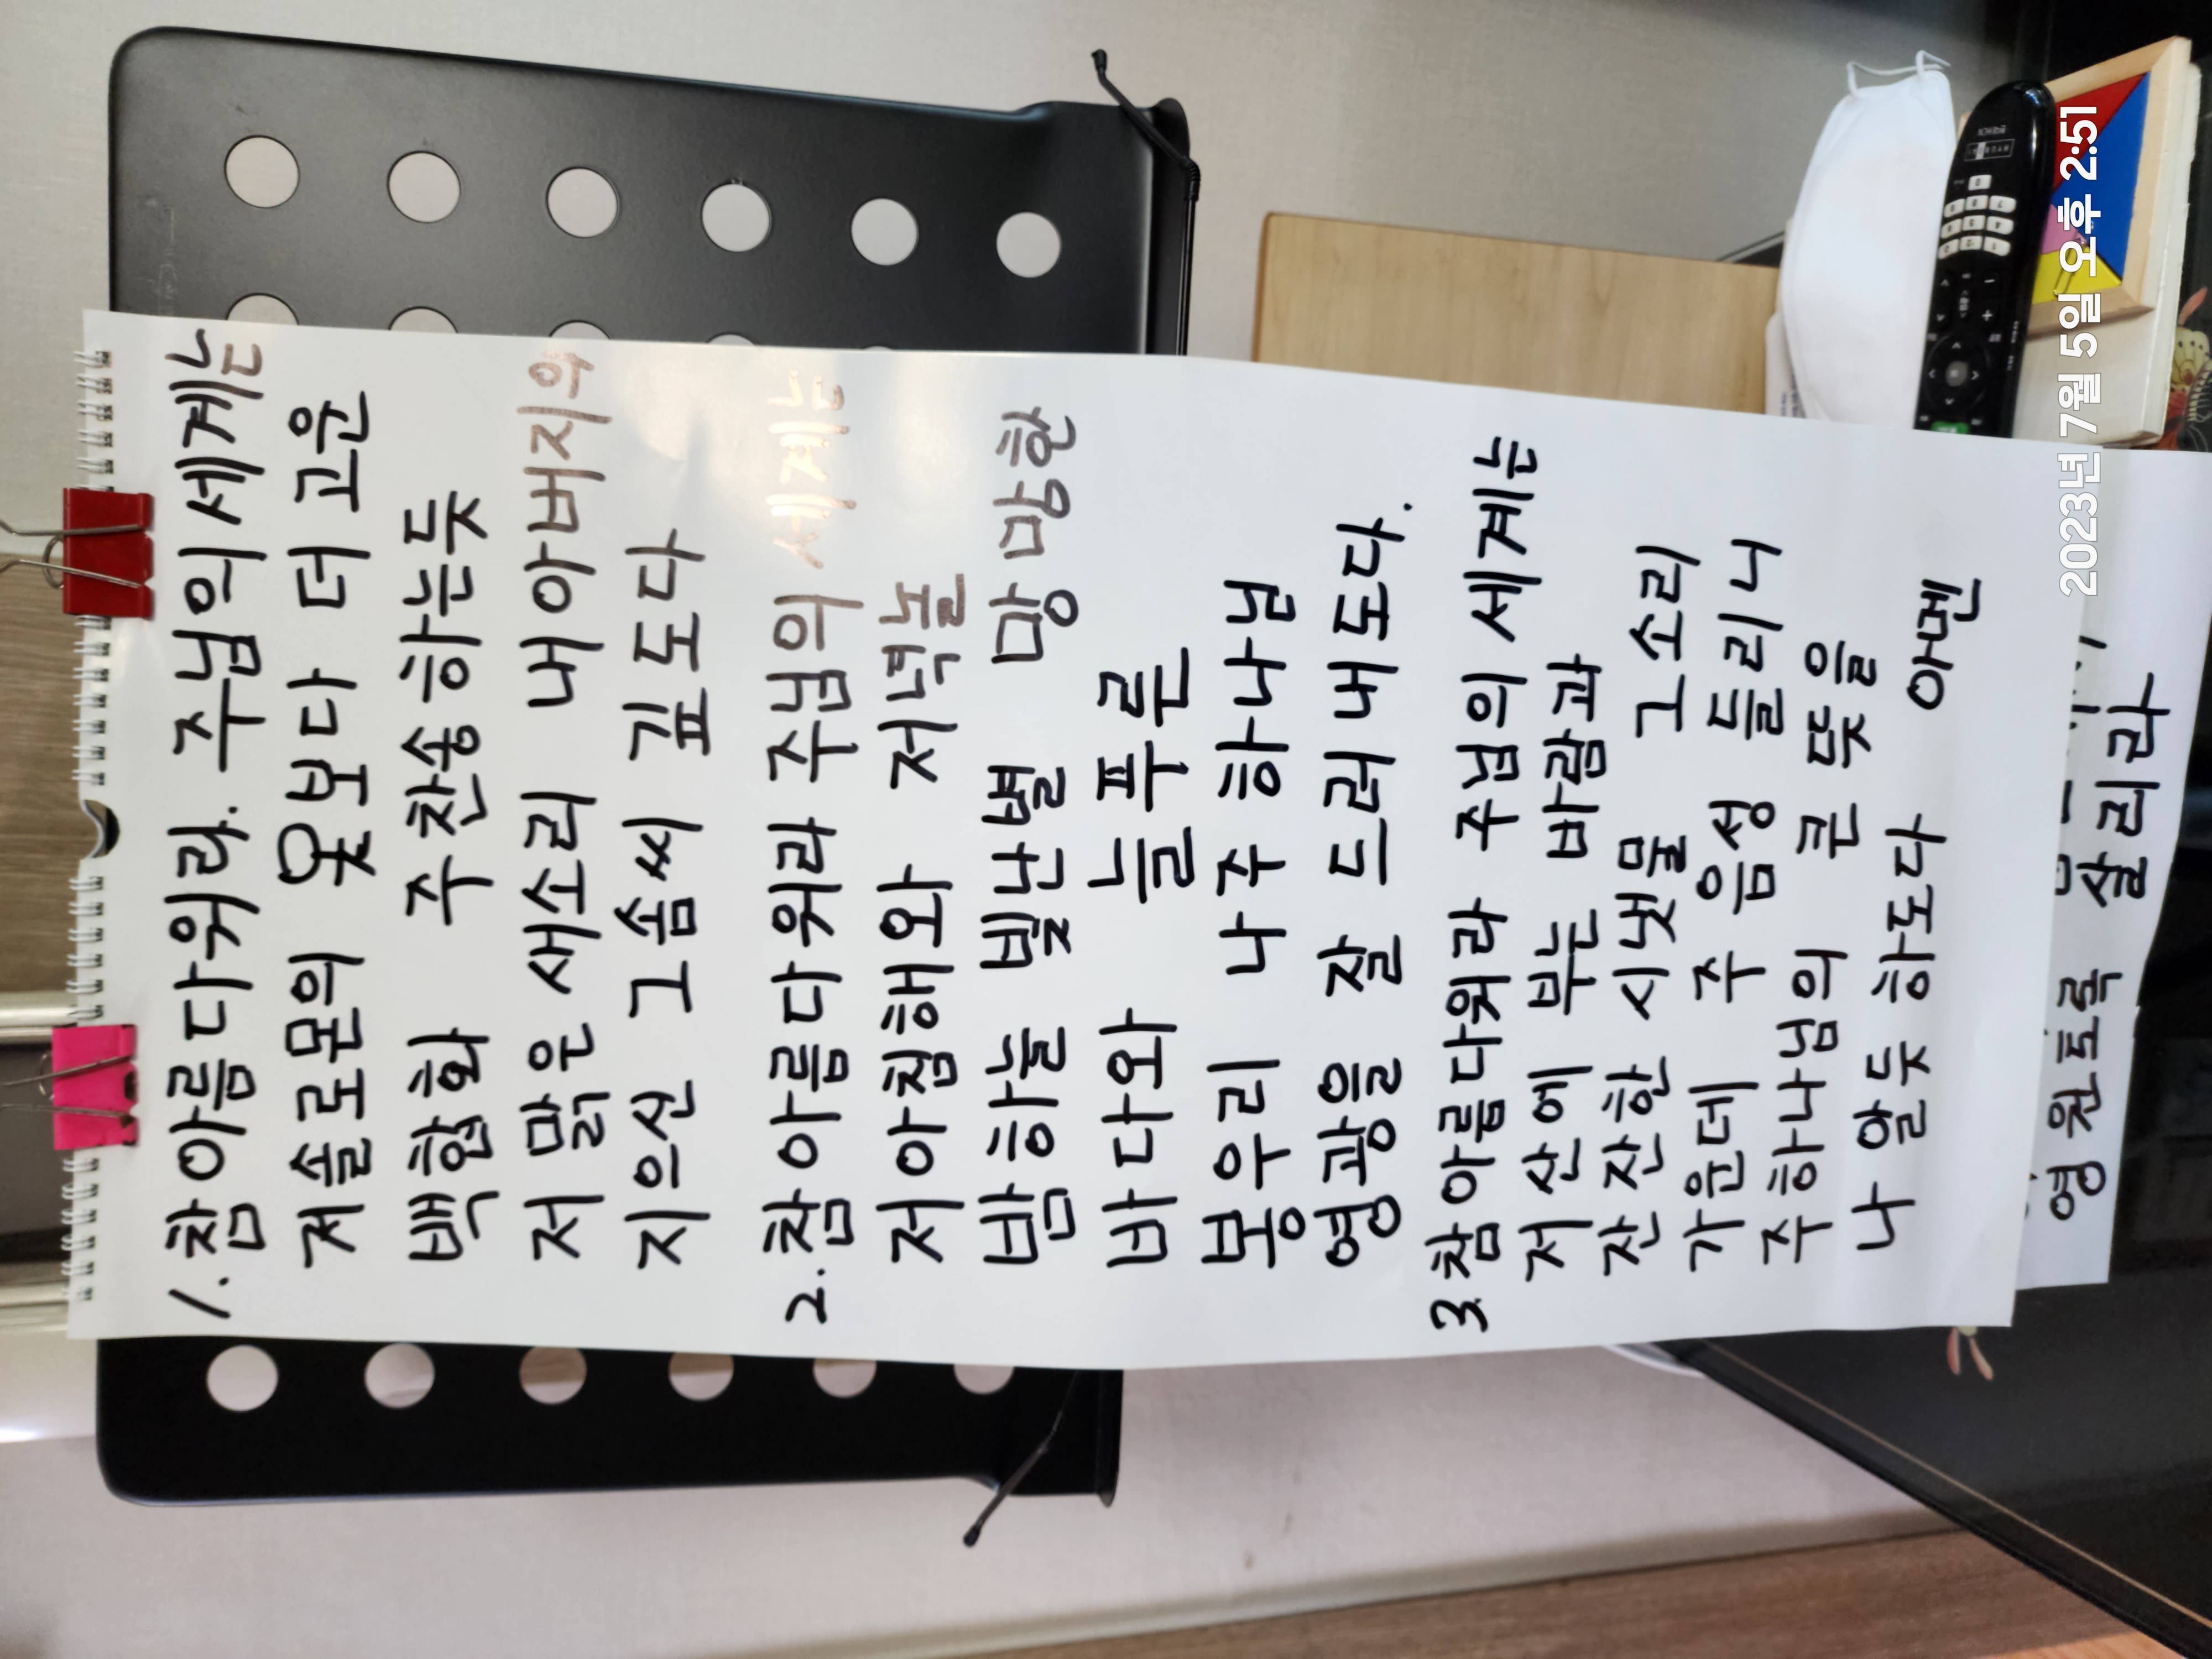 1. 참아름다워라. 주님의 세계는
저 솔로몬의 옷보다 더 고운
백합화 주찬송하는듯
저 맑은 새소리 내아버지의
지으신 그솜씨 깊도다
2. 참아름다워라 주님의 세계는
저아침해와 저녁놀
밤하늘 빛난별 망망한
바다와 늘푸른
봉우리 나 주 하나님
영광을 잘 드러내도다.
3. 참아름다워라 주님의 세계는
저산에 부는 바람과
잔잔한 시냇물 그소리
가운데 주 음성 들리니
주하나님의 큰 뜻을
나 알듯하도다 아멘
영원토록 살리라
2023년 7월 5일 오후 2:51